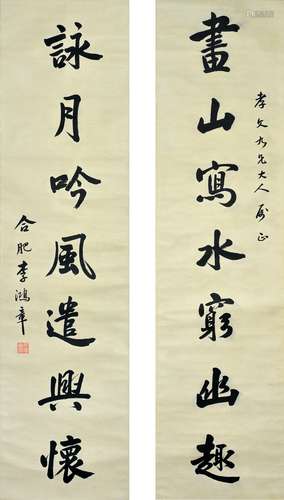 畫山寫水窮幽趣
孝文仁兄大人屬正
詠月吟風遣興懷
合肥李鴻章